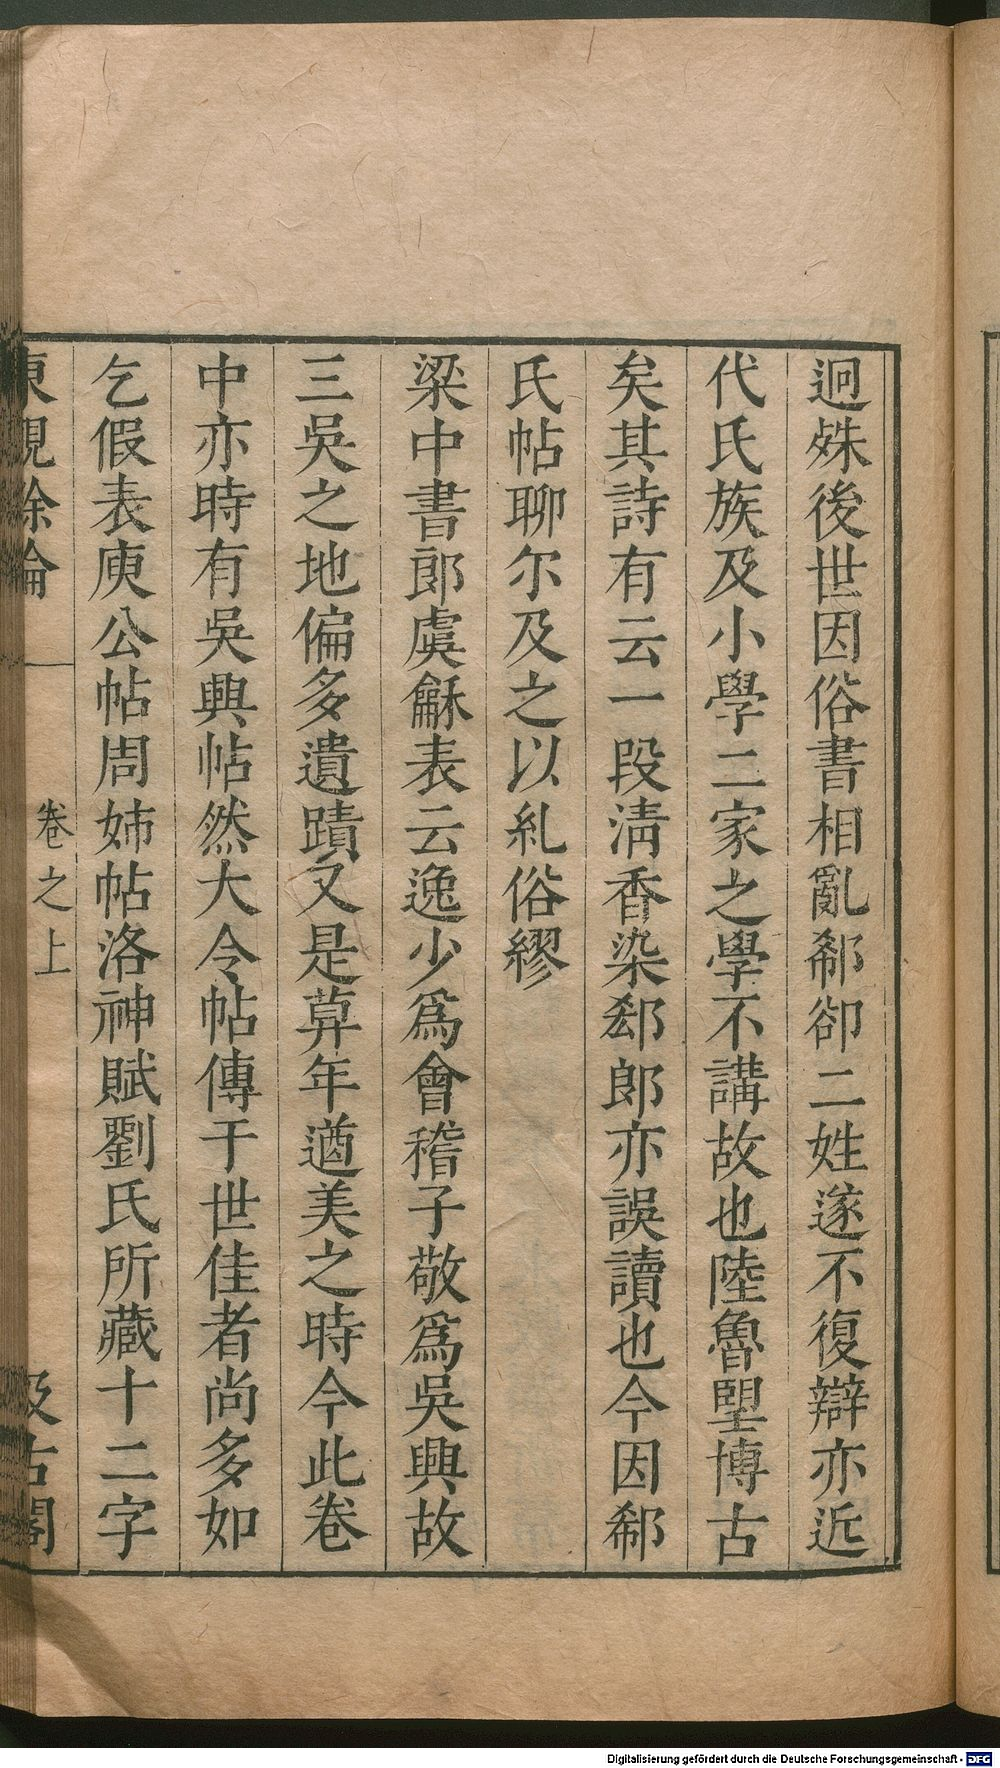 迥殊後世因俗書相亂郗卻二姓遂不復辯亦近
代氏族及小學二家之學不講故也陸魯朢博古
矣其詩有云一段清香染郄郎亦誤讀也今因郗
氏帖聊尔及之以糺俗繆
梁中書郎虞龢表云逸少爲會稽子敬爲吳興故
三吳之地偏多遺蹟又是暮年遒美之時今此卷
中亦時有吳興帖然大令帖傳于世佳者尚多如
乞假表庾公帖周姊帖洛神賦劉氏所藏十二字
東觀餘論 卷之上 汲古閣
Digitalisierung gefördert durch die Deutsche Forschungsgemeinschaft - DFG